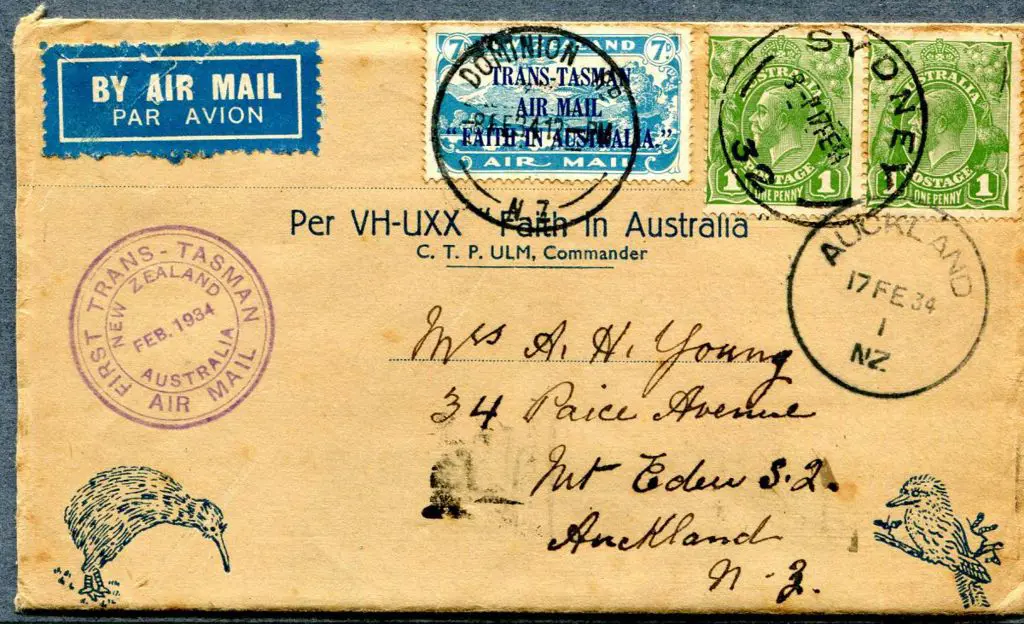 BY AIR MAIL
PAR AVION
7D ZEALAND 7D
TRANS-TASMAN
AIR MAIL
"FAITH IN AUSTRALIA."
AIR MAIL
DOMINION
N.Z.
AUSTRALIA
POSTAGE
1 ONE PENNY 1
AUSTRALIA
POSTAGE
1 ONE PENNY 1
SYDNEY
32
Per VH-UXX "Faith in Australia
C. T. P. ULM, Commander
AUCKLAND
17 FE 34
1
NZ
FIRST TRANS-TASMAN AIR MAIL
NEW ZEALAND
FEB. 1934
AUSTRALIA
Mrs A. H. Young
34 Paice Avenue
Mt Eden S.2.
Auckland
N.Z.